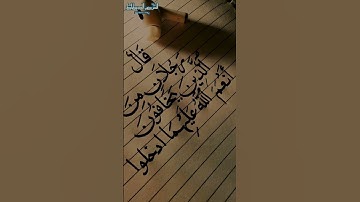 قَالَ رَجُلَانِ مِنَ
الَّذِينَ يَخَافُونَ
أَنْعَمَ اللَّهُ عَلَيْهِمَا ادْخُلُوا